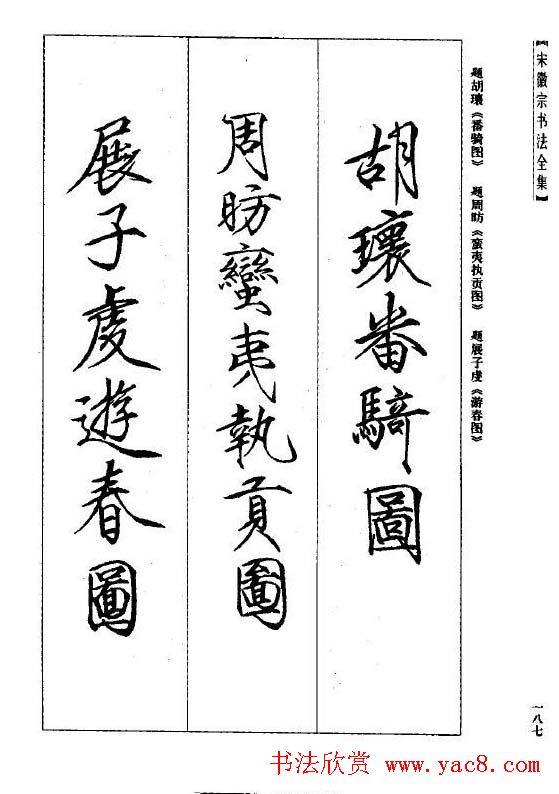 【宋徽宗书法全集】
题胡瓌《番骑图》 题周昉《蛮夷执贡图》 题展子虔《游春图》
胡瓌番騎圖
周昉蠻夷執貢圖
展子虔遊春圖
一八七
书法欣赏 www.yac8.com